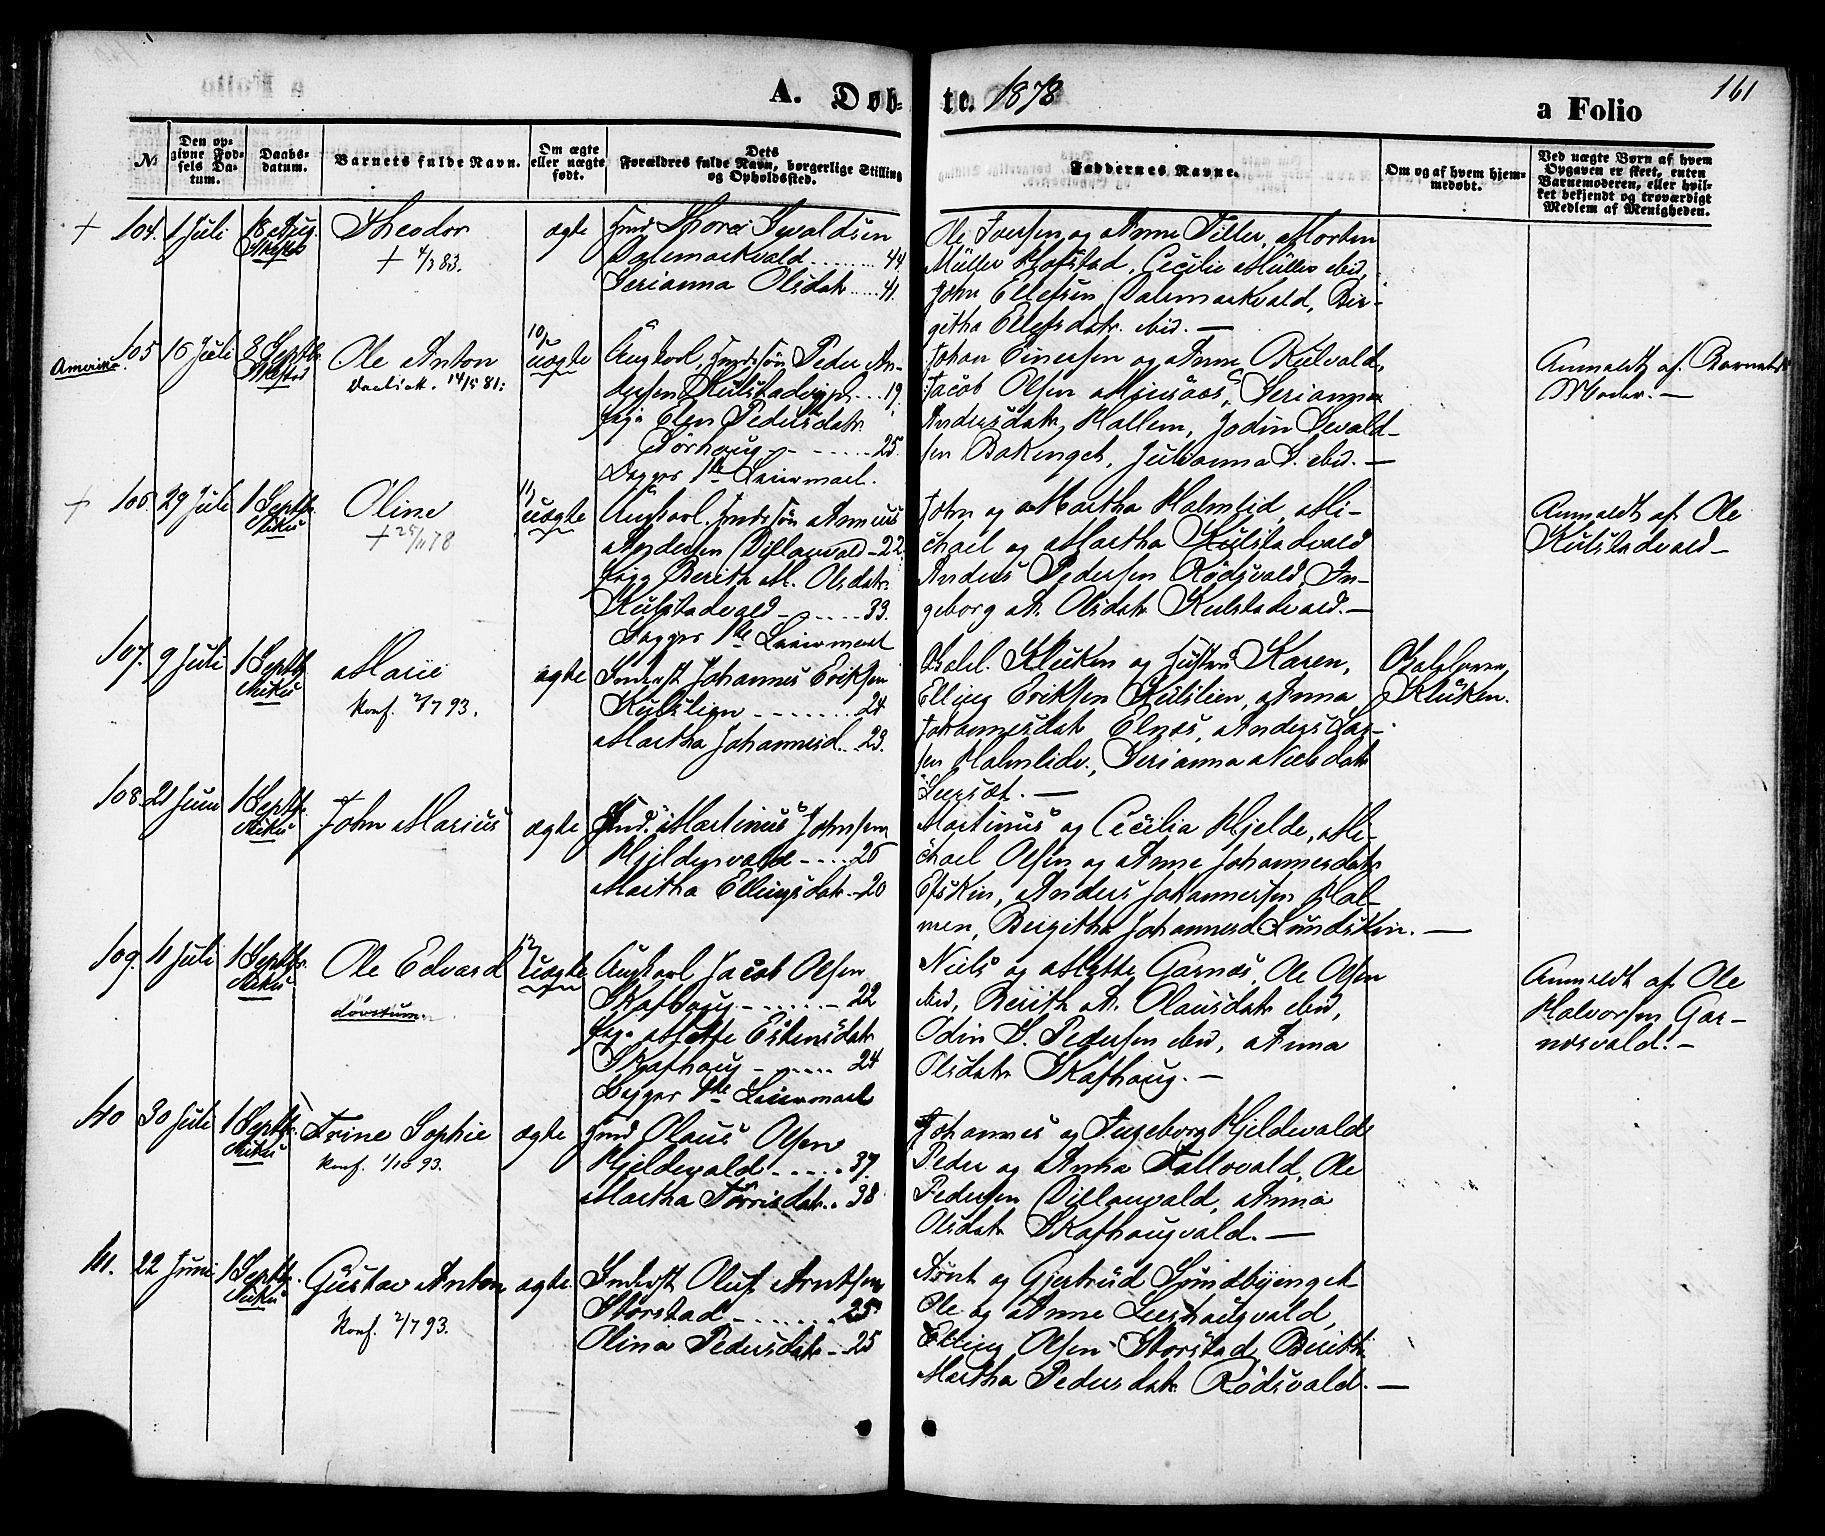 A. Døb-
te. 1878
a Folio
161
№
Den op-
givne Fød-
sels Da-
tum.
Daabs-
datum.
Barnets fulde Navn.
Om ægte
eller uægte
født.
Dets
Forældres fulde Navn, borgerlige Stilling
og Opholdssted.
Faddernes Navne.
Om og af hvem hjem-
medøbt.
Ved uægte Børn af hvem
Opgaven er skeet, enten
Barnemoderen, eller hvil-
ket bekjendt og troværdigt
Medlem af Menigheden.
+ 104. 1 Juli 18 Aug.
Theodor
+ 4/3 83.
ægte
Dalemarkvald 44
Serianna Olsdatr 41.
Ole Iversen og Anne Tiller, Morten
Müller Hofstad, Cecilie Müller ibid,
John Ellefsen Dalemarkvald, Bir-
githa Ellefsdatr. ibid. —
Amerika. 105 16 Juli 8 Septbr.
Ole Anton
Vaccinat. 14/5 81:
10, uægte
Ungkarl, Indssøn Peder An-
dersen Kulstadvald 19,
Pige Elen Pedersdatr.
Sørhaug 25.
Begges 1ste Leiermaal.
Johan Einersen og Anne Kulvald,
Jacob Olsen Musaas, Serianna
Andersdatr Hallem, Jodin Sevald-
sen Bakenget, Julianna S. ibid. —
Anmeldt af Barnets
Moder. —
+ 106 29 Juli 1 Septbr.
Oline
+ 25/11 78
11, uægte
Ungkarl. Indssøn Annæus
Andersen Dillanvald 22
Pige Berith M. Olsdatr.
Kulstadvald 33.
Begges 1ste Leiermaal
John og Martha Halmlid, Mi-
chael og Martha Kulstadvald
Anders Pedersen Rødsvald, In-
geborg A. Olsdatr Kulstadvald. —
Anmeldt af Ole
Kulstadvald —
107. 9 Juli 1 Septbr.
Marie
konf. 2/7 93.
ægte
Inderst Johannes Eriksen
Kulslien 24
Martha Johannesd. 23.
Kluken og Hustru Karen,
Elling Eriksen Kulslien, Anna
Johannesdatr Elnæs, Anders Lar-
sen Halmlide, Serianna Nielsdatr
Leersæt. —
Kluken.
108. 21 Juni 1 Septbr.
John Marius
ægte
Ind. Martinus Johnsen
Hjeldesvald 26
Martha Ellingsdatr 20
Martinus og Cecilia Hjelde, Mi-
chael Olsen og Anne Johannesdatr
Efskin, Anders Johannessen Hal-
men, Birgitha Johannesd Lundskin. —
109. 11 Juli 1 Septbr.
Ole Edvard
døvstum.
12, uægte
Ungkarl Jacob Olsen
Skafhaug 22
Pige Mette Estensdatr
Skafhaug 24
Begges 1ste Leiermaal
Niels og Mette Garnæs, Ole Olsen
ibid, Berith A. Olausdatr ibid,
Odin S. Pedersen ibid, Anna
Olsdatr Skafhaug. —
Anmeldt af Ole
Halvorsen Gar-
næsvald. —
110 30 Juli 1 Septbr.
Trine Sophie
konf. 1/10 93.
ægte
Ind Olaus Olsen
Hjeldevald 37.
Martha Tørrisdatr. 38
Johannes og Ingeborg Hjeldevald
Peder og Anna Fallovald, Ole
Pedersen Dillanvald, Anna
Olsdatr Skafhaugvald. —
111. 22 Juni 1 Septbr.
Gustav Anton
konf. 2/7 93.
ægte
Inderst Oluf Arntsen
Storstad 25
Olina Pedersdatr 25
Arnt og Gjertrud Sundbyenget
Ole og Anne Leershaugvald,
Elling Olsen Storstad, Berith
Martha Pedersdatr Rødsvald. —